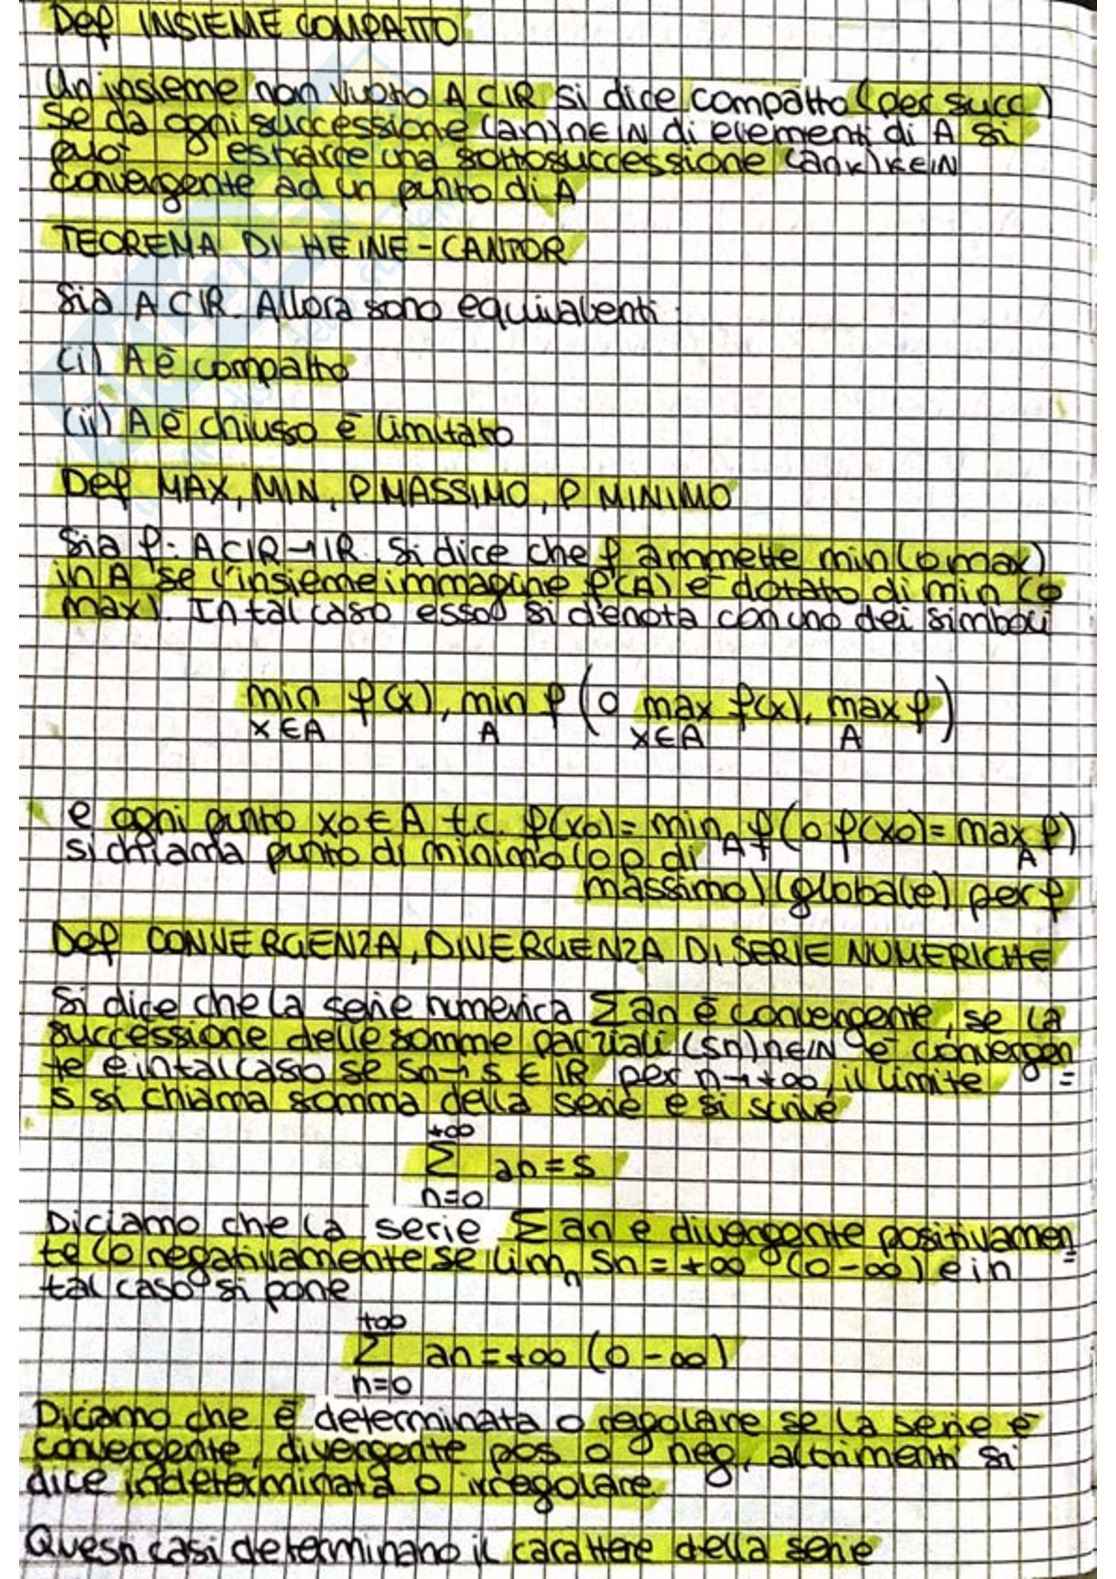 Def INSIEME COMPATTO
Un insieme non vuoto A ⊂ IR si dice compatto (per succ)
se da ogni successione (an)n∈IN di elementi di A si
può estrarre una sottosuccessione (ank)k∈IN
convergente ad un punto di A
TEOREMA DI HEINE-CANTOR
Sia A ⊂ IR. Allora sono equivalenti:
(i) A è compatto
(ii) A è chiuso e limitato
Def MAX, MIN, P MASSIMO, P MINIMO
Sia f: A⊂IR→IR. Si dice che f ammette min (o max)
in A se l'insieme immagine f(A) è dotato di min (o
max). In tal caso esso si denota con uno dei simboli
min f(x), min f (o max f(x), max f)
x∈A A x∈A A
e ogni punto x0∈A t.c. f(x0)= minA f (o f(x0)= max f)
A
si chiama punto di minimo (o p. di
massimo) (globale) per f
Def CONVERGENZA, DIVERGENZA DI SERIE NUMERICHE
Si dice che la serie numerica Σan è convergente, se la
successione delle somme parziali (sn)n∈IN è convergen
te e in tal caso se Sn→S∈IR per n→+∞, il limite =
S si chiama somma della serie e si scrive
+∞
Σ an=S
n=0
Diciamo che la serie Σan è divergente positivamen
te (o negativamente se limn Sn=+∞ (o-∞) e in =
tal caso si pone
+∞
Σ an=+∞ (o -∞)
n=0
Diciamo che è determinata o regolare se la serie è
convergente, divergente pos o neg, altrimenti si
dice indeterminata o irregolare.
Questi casi determinano il carattere della serie